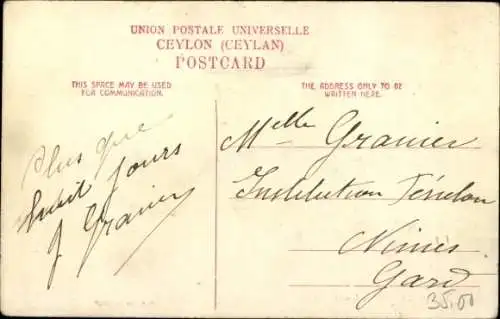 UNION POSTALE UNIVERSELLE
CEYLON (CEYLAN)
POSTCARD
THIS SPACE MAY BE USED
FOR COMMUNICATION.
THE ADDRESS ONLY TO BE
WRITTEN HERE.
Plus que
huit jours
J Granier
Melle Granier
Institution Fénelon
Nimes
Gard
35,00